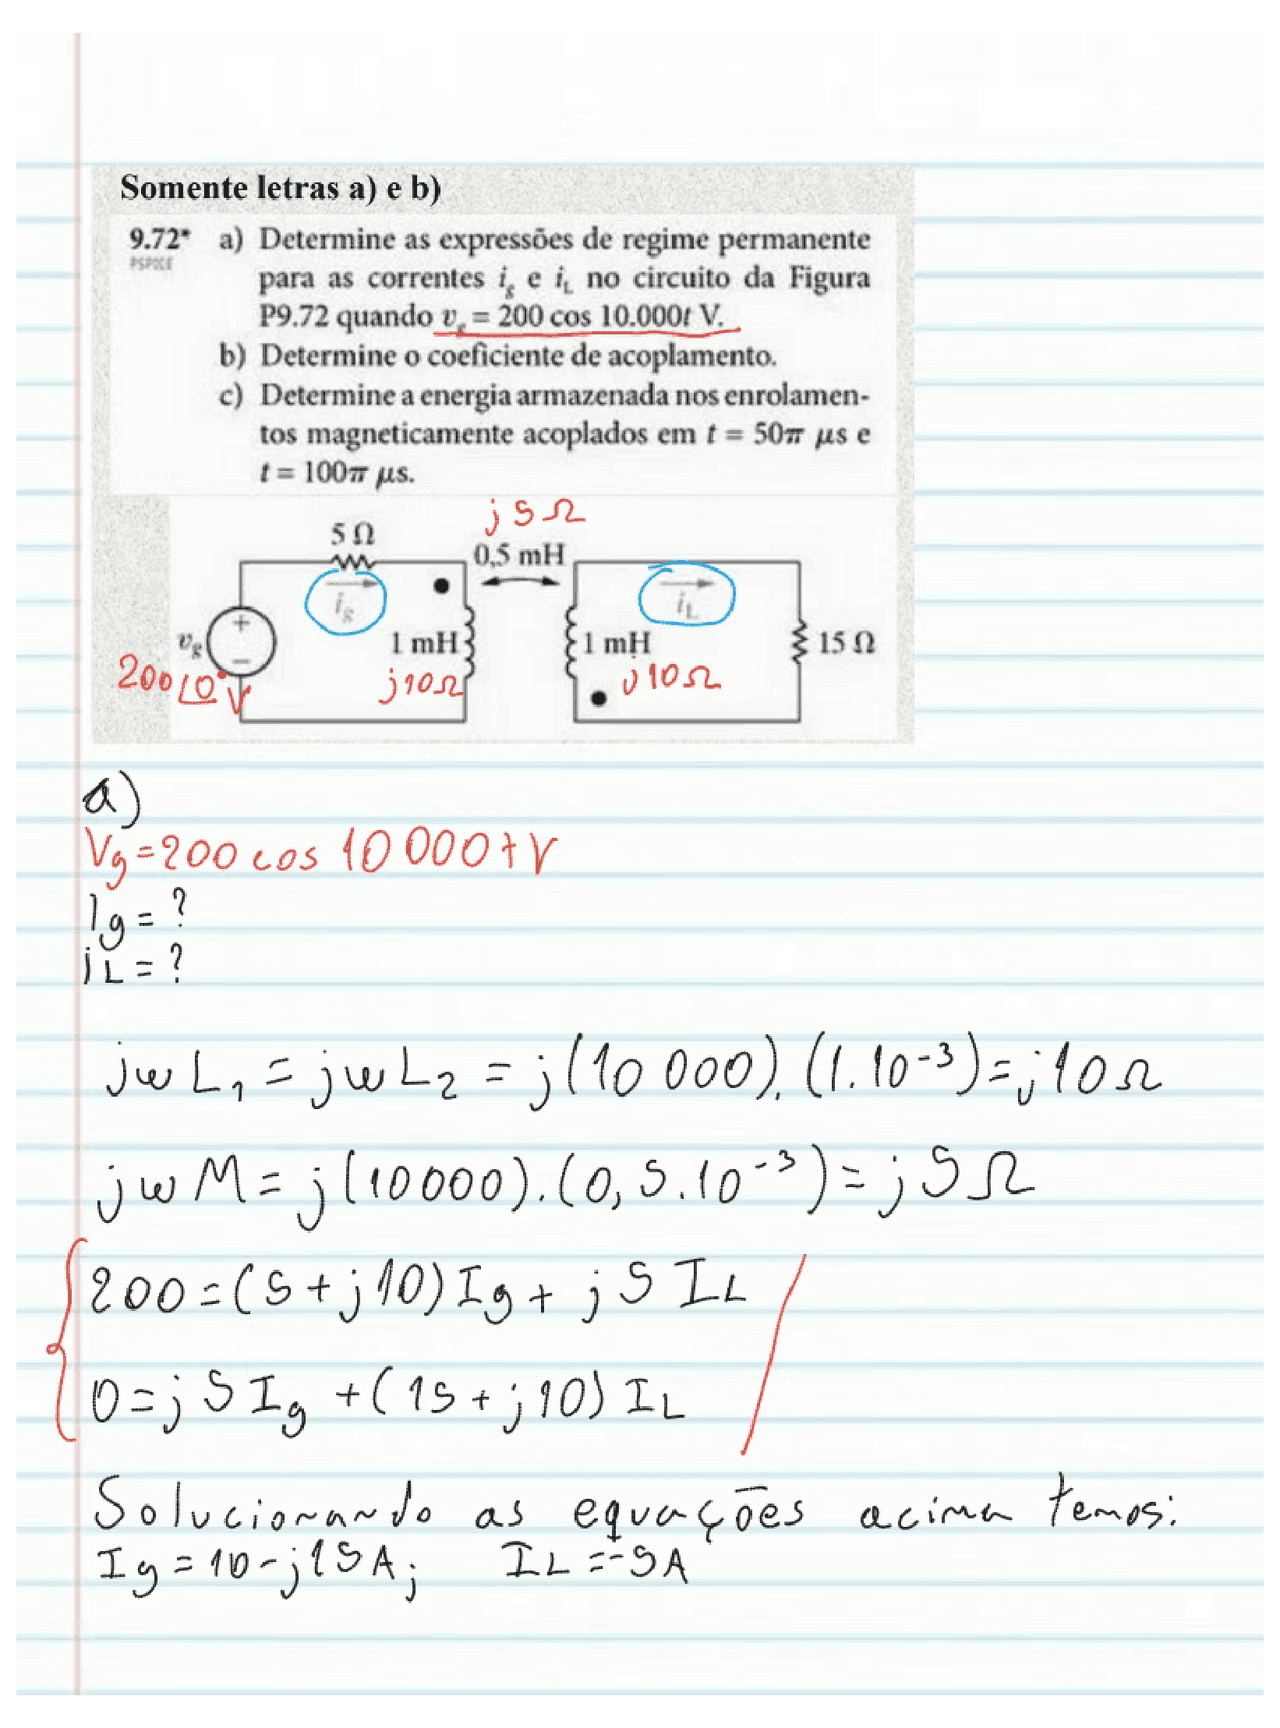 Somente letras a) e b)
9.72* a) Determine as expressões de regime permanente
PSPICE
para as correntes ig e iL no circuito da Figura
P9.72 quando vg = 200 cos 10.000t V.
b) Determine o coeficiente de acoplamento.
c) Determine a energia armazenada nos enrolamen-
tos magneticamente acoplados em t = 50π μs e
t = 100π μs.
j5Ω
5 Ω
0,5 mH
ig
iL
+
vg
−
1 mH
1 mH
15 Ω
200∠0° V
j10Ω
j10Ω
a)
Vg=200 cos 10 000t V
Ig = ?
iL = ?
jwL1 = jwL2 = j(10 000).(1.10-3)=j10Ω
jwM=j(10000).(0,5.10-3)=j5Ω
200=(5+j10)Ig+j5IL
0=j5Ig+(15+j10)IL
Solucionando as equações acima temos:
Ig=10-j15A; IL=-5A